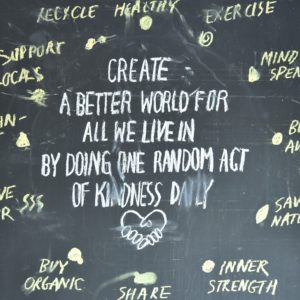 RECYCLE HEALTHY EXERCISE
SUPPORT
LOCALS
MIND
CREATE
A BETTER WORLD FOR
ALL WE LIVE IN
BY DOING ONE RANDOM ACT
OF KINDNESS DAILY
$$$
BUY
ORGANIC
SHARE
INNER
STRENGTH